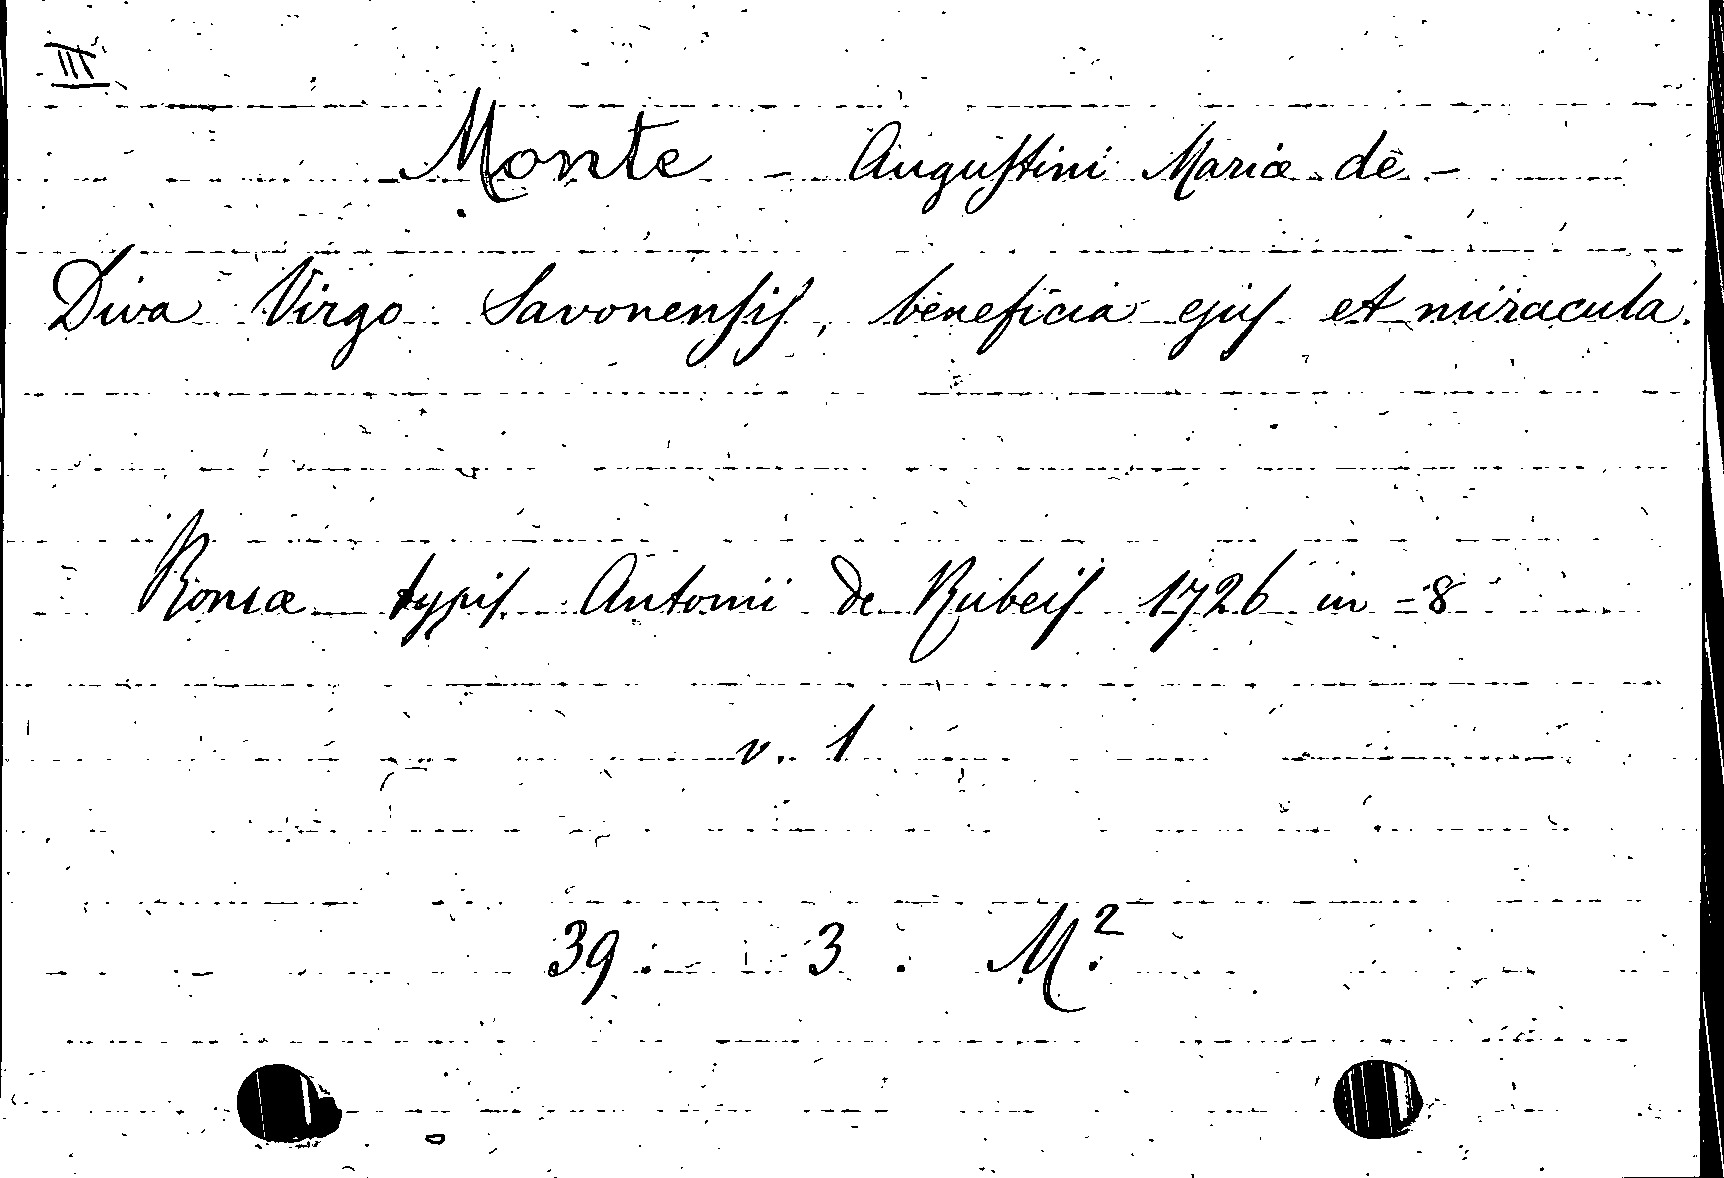 III
Monte - Augustini Mariæ de -
Diva Virgo Savonensis, beneficia ejus et miracula.
Romæ typis Antonii de Rubeis 1726 in-8
v. 1
39. 3. M.²